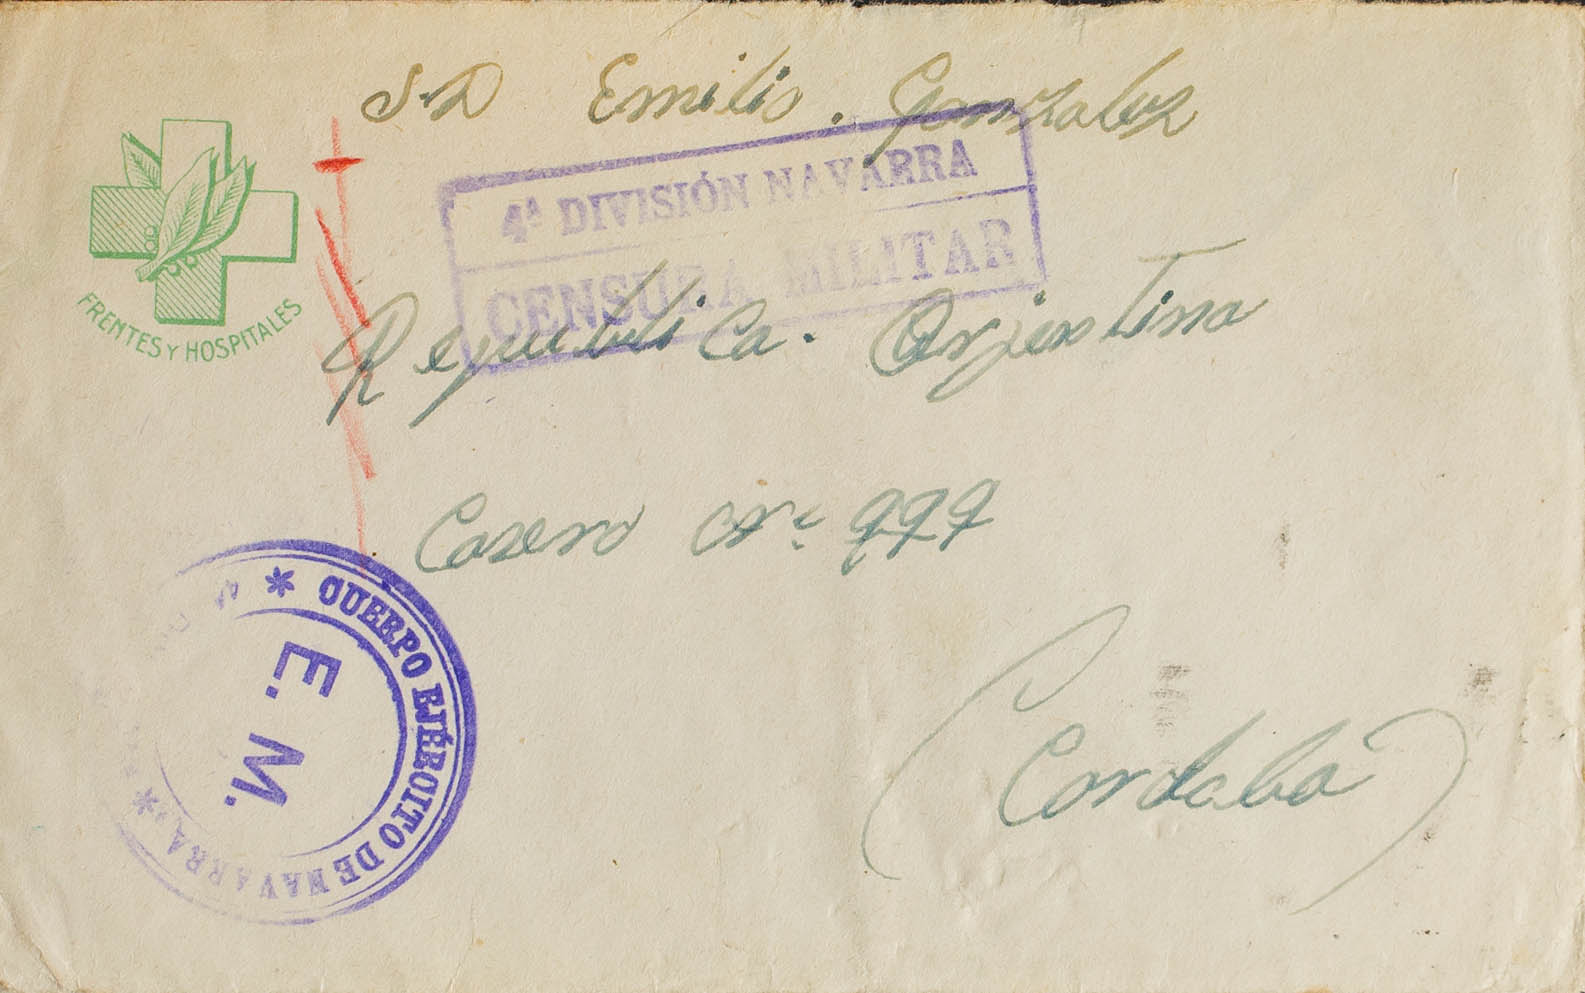 S·D Emilio. Gonzalez
4ª DIVISIÓN NAVARRA
CENSURA MILITAR
FRENTES Y HOSPITALES
Republica. Arjentina
Casero Nº 999
CUERPO EJÉRCITO DE NAVARRA. * 4ª *
E. M.
(Cordoba)